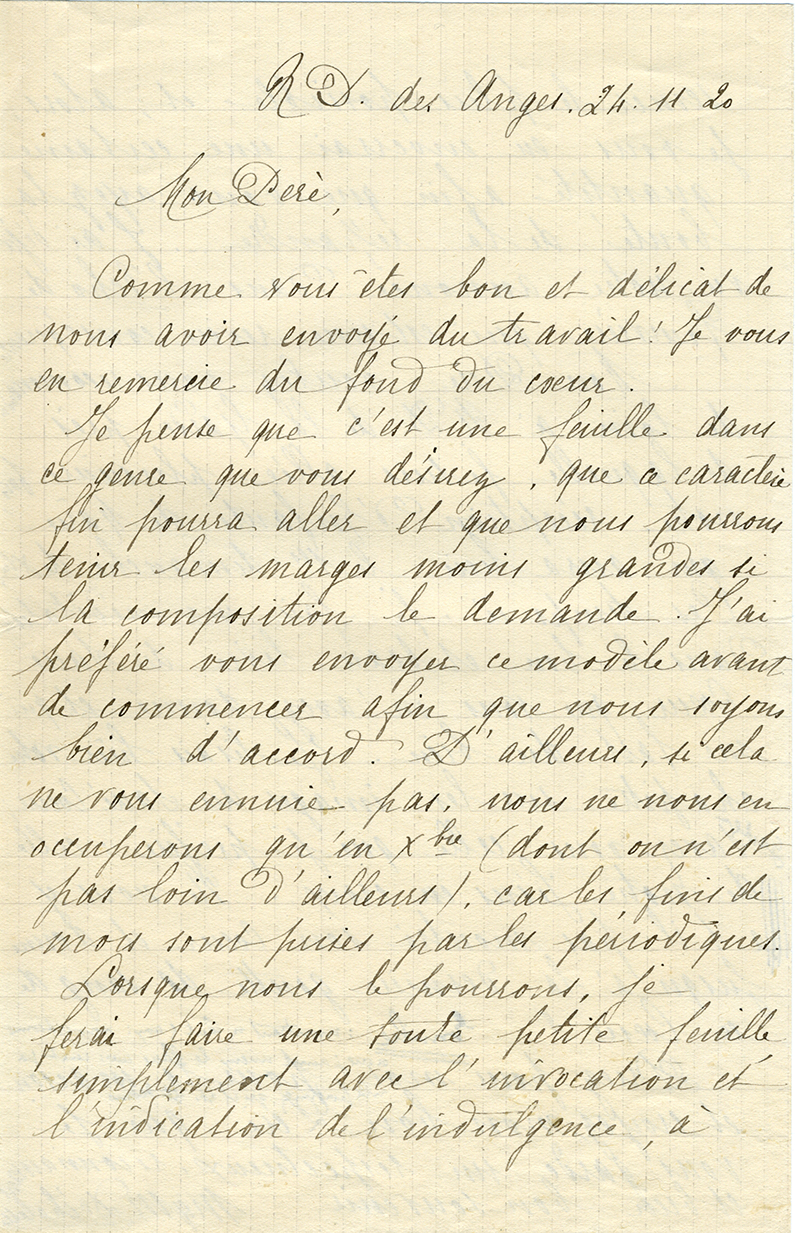 R D. des Anges. 24. 11 20
Mon Perè,
Comme vous êtes bon et délicat de
nous avoir envoyé du travail! Je vous
en remercie du fond du cœur.
Je pense que c'est une feuille dans
ce genre que vous désirez, que ce caractère
fin pourra aller et que nous pourrons
tenir les marges moins grandes si
la composition le demande. J'ai
préféré vous envoyer ce modèle avant
de commencer afin que nous soyons
bien d'accord. D'ailleurs, si cela
ne vous ennuie pas, nous ne nous en
occuperons qu'en Xbre (dont on n'est
pas loin d'ailleurs), car les fins de
mois sont prises par les périodiques.
Lorsque nous le pourrons, je
ferai faire une toute petite feuille
simplement avec l'invocation et
l'indication de l'indulgence, à